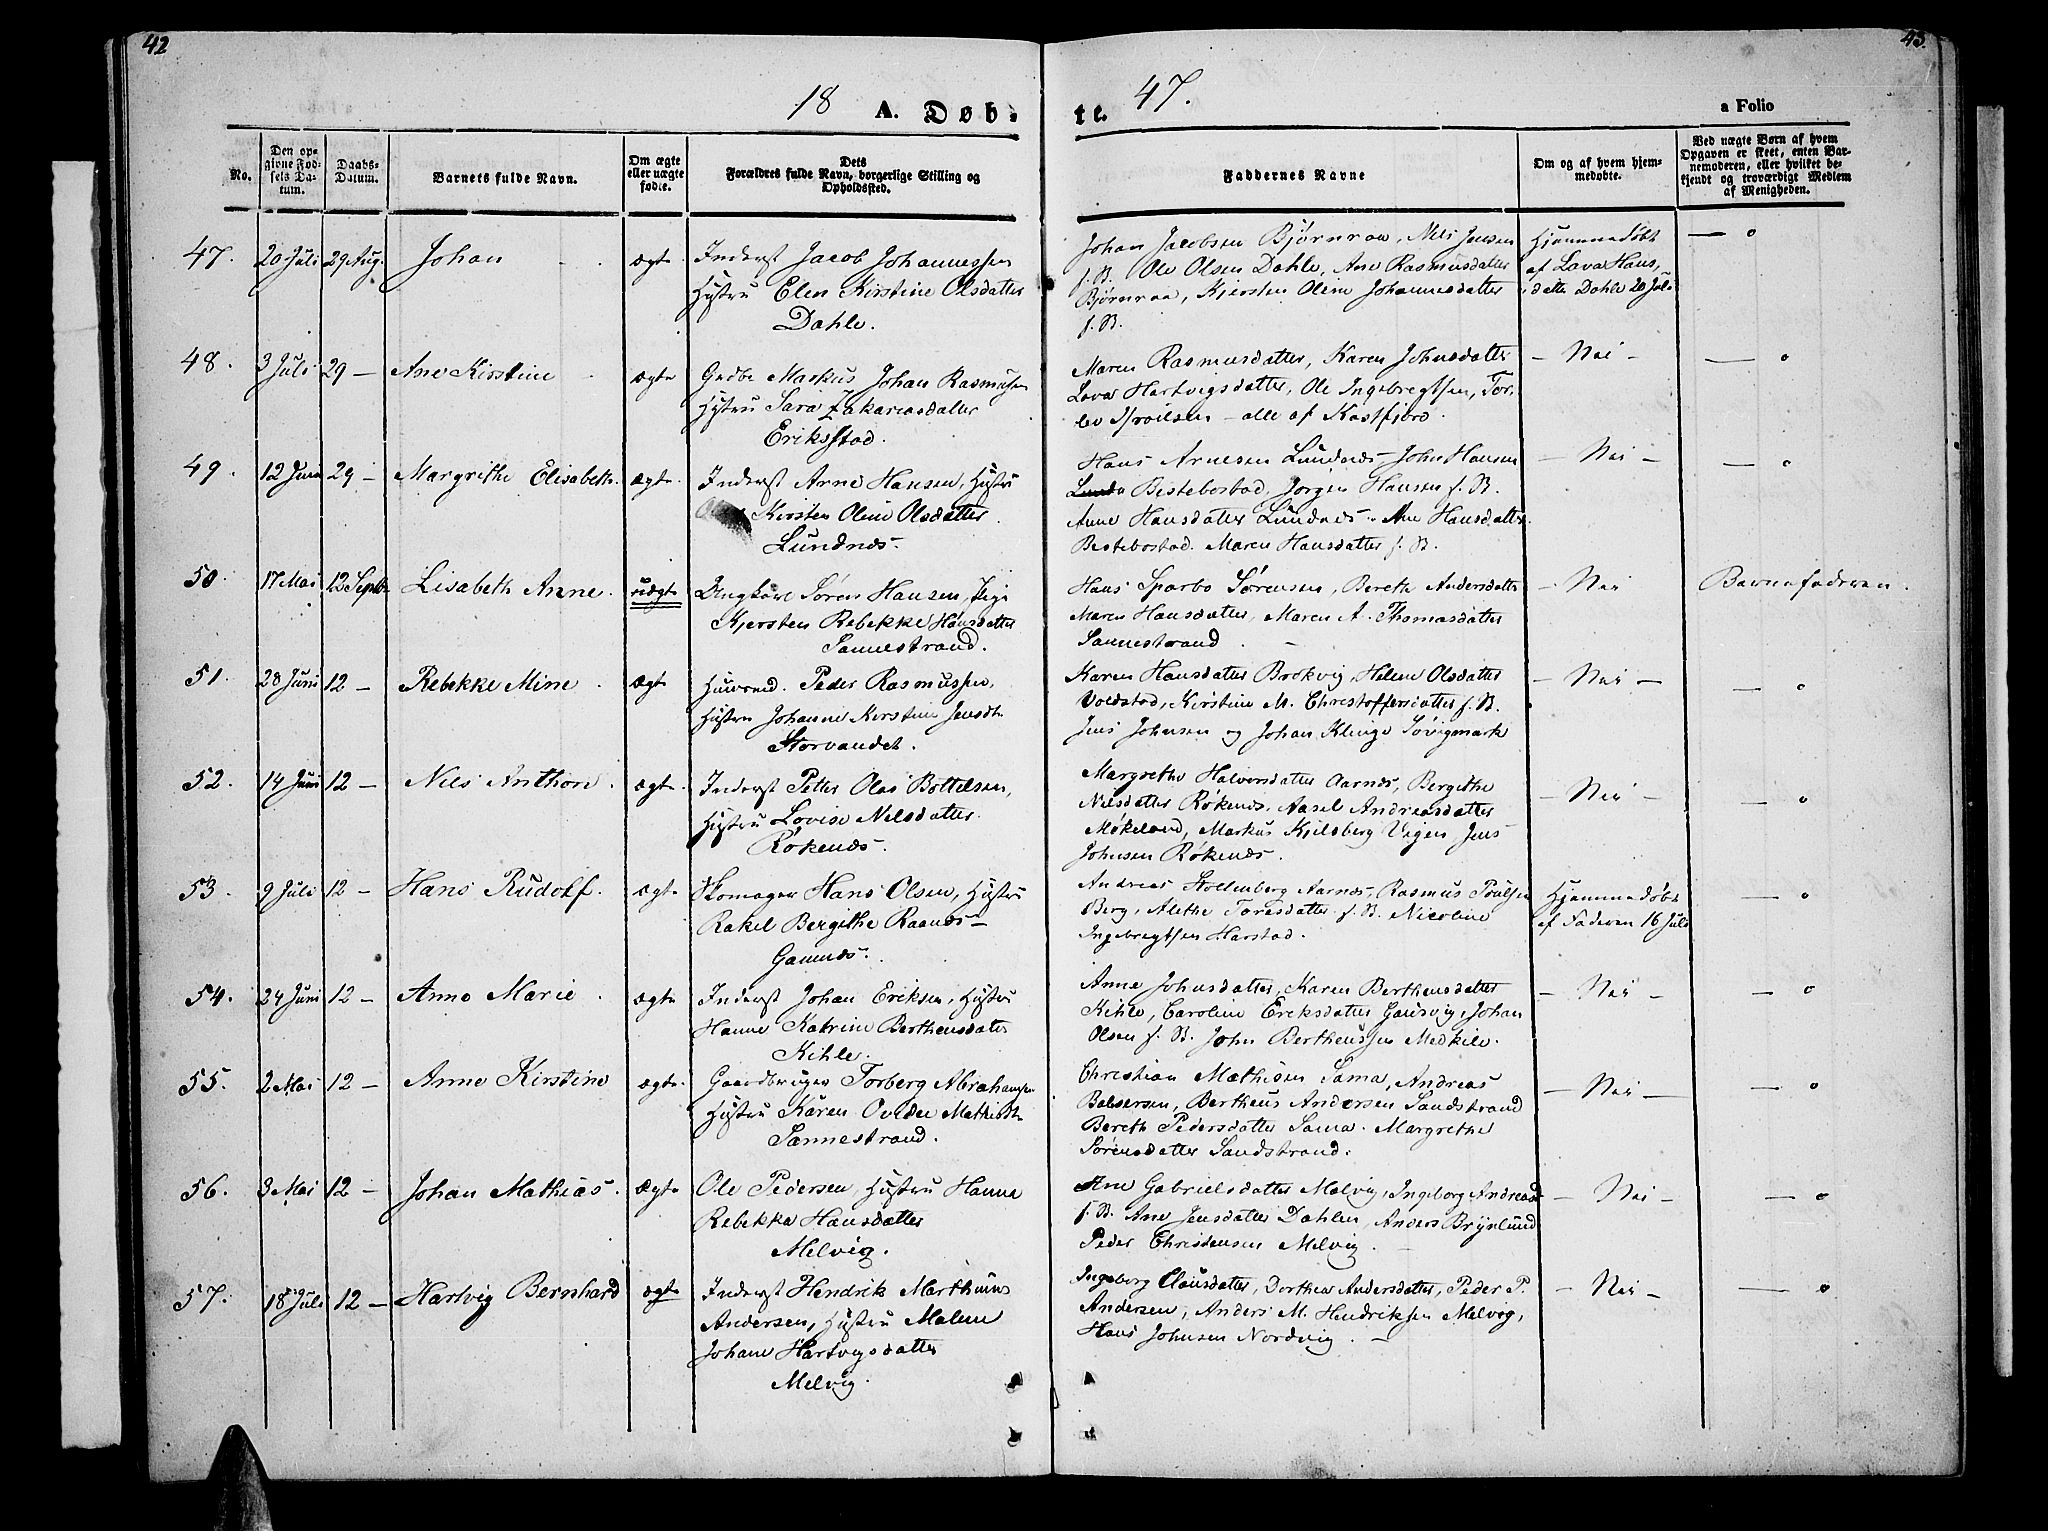 42
43.
18 A. Døb-
te. 47.
a Folio
No.
Den op-
givne Fød-
sels Da-
tum.
Daabs-
Datum.
Barnets fulde Navn.
Om ægte
eller uægte
fødte.
Dets
Forældres fulde Navn, borgerlige Stilling og
Opholdssted.
Faddernes Navne
Om og af hvem hjem-
medøbte.
Ved uægte Børn af hvem
Opgaven er skeet, enten Bar-
nemoderen, eller hvilket be-
kjendt og troværdigt Medlem
af Menigheden.
47. 20 Juli 29 Aug. Johan ægte
Inderst Jacob Johannessen
Hustru Elen Kirstine Olsdatter
Dahle.
Johan Jacobsen Bjørnraa, Nils Jensen
f. B. Ole Olsen Dahle, Ane Rasmusdatter
Bjørnraa, Kjersten Oline Johannesdatter
f. B.
Hjemmedøbt
af Lava Hans-
datter Dahle 20 Juli
— o
48. 3 Juli 29 — Ane Kirstine ægte
Grdbr Markus Johan Rasmusen
Hustru Sara Zakariasdatter
Eriksstad.
Maren Rasmusdatter, Karen Johnsdatter
Lava Hartvigsdatter, Ole Ingebregtsen, Tor-
lev Isroilsen — alle af Kastfjord.
— Nei —
— o
49. 12 Juni 29 — Margrithe Elisabeth. ægte.
Inderst Arne Hansen, Hustru
Kirsten Oline Olsdatter
Lundnæs.
Hans Arnesen Lundnæs — John Hansen
Bestebostad, Jørgen Hansen f. B.
Anne Hansdatter Lundnæs. Ane Hansdatter
Bestebostad. Maren Hansdatter f. B.
— Nei —
— o
50. 17 Mai 12 Septbr Lisabeth Anne. uægte
Ungkarl Søren Hansen, Pige
Kjersten Rebekke Hansdatter
Sannestrand.
Hans Sparbo Sørensen, Bereth Andersdatter
Maren Hansdatter, Maren A. Thomasdatter
Sannestrand. —
— Nei
Barnefaderen.
51. 28 Juni 12 — Rebekke Mine. ægte
Huusmd. Peder Rasmussen,
Hustru Johanne Kirstine Jensdtr
Storvandet.
Karen Hansdatter Brokvig, Helene Olsdatter
Voldstad, Kirstine M. Christoffersdatter f. B.
Jens Johnsen og Johan Klenge Søvigmark
— Nei —
— o
52. 14 Juni 12 — Nils Anthon. ægte.
Inderst Petter Olai Bottelsen,
Hustru Lovise Nilsdatter.
Røkenæs.
Margrethe Halvorsdatter Aarnæs, Bergithe
Nilsdatter Røkenæs. Aasel Andreasdatter
Møkeland, Markus Kjilsberg Vigen, Jens
Johnsen Røkenæs.
— Nei —
— o
53. 9 Juli 12 — Hans Rudolf. ægte
Skomager Hans Olsen, Hustru
Rakel Bergithe Raanæs —
Gamnæs.
Andreas Stoltenberg Aarnæs, Rasmus Poulsen
Berg, Alethe Toresdatter f. B. Nicoline
Ingebregtsen Harstad.
Hjemmedøbt
af Faderen 16 Juli
— o
54. 24 Juni 12 — Anne Marie. ægte
Inderst Johan Eriksen, Hustru
Hanne Katrine Bertheusdatter
Kihle.
Anne Johnsdatter, Karen Bertheusdatter
Kihle, Caroline Eriksdatter Gausvig, Johan
Olsen f. B. John Bertheussen Medkile.
— Nei —
— o
55. 2 Mai 12 — Anne Kirstine ægte.
Gaardbruger Torberg Abrahamsen
Hustru Karen Ovedie Mathisdtr
Sannestrand.
Christian Mathisen Sama, Andreas
Balsersen, Bertheus Andersen Sandstrand
Bereth Pedersdatter Sama. Margrethe
Sørensdatter Sandstrand.
— Nei —
— o
56. 3 Mai 12 — Johan Mathias. ægte
Ole Pedersen, Hustru Hanna
Rebekka Hansdatter
Melvig.
Ane Gabrielsdatter Melvig, Ingeborg Andreasd
f. B. Ane Jensdatter Dahlen, Anders Brynlund
Peder Christensen Melvig. —
— Nei —
— o
57. 18 Juli 12 — Hartvig Bernhard ægte
Inderst Hendrik Marthinus
Andersen, Hustru Malene
Johane Hartvigsdatter
Melvig.
Ingeborg Clausdatter, Dorthea Andersdatter, Peder P.
Andersen, Anders M. Hendriksen Melvig,
Hans Johnsen Nordvig. —
— Nei —
— o